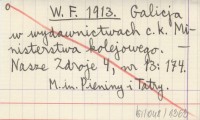 W. F. 1913. Galicja
w wydawnictwach c. k. Mi-
nisterstwa kolejowego.
Nasze Zdroje 4, nr 13: 174.
M. in. Pieniny i Tatry.